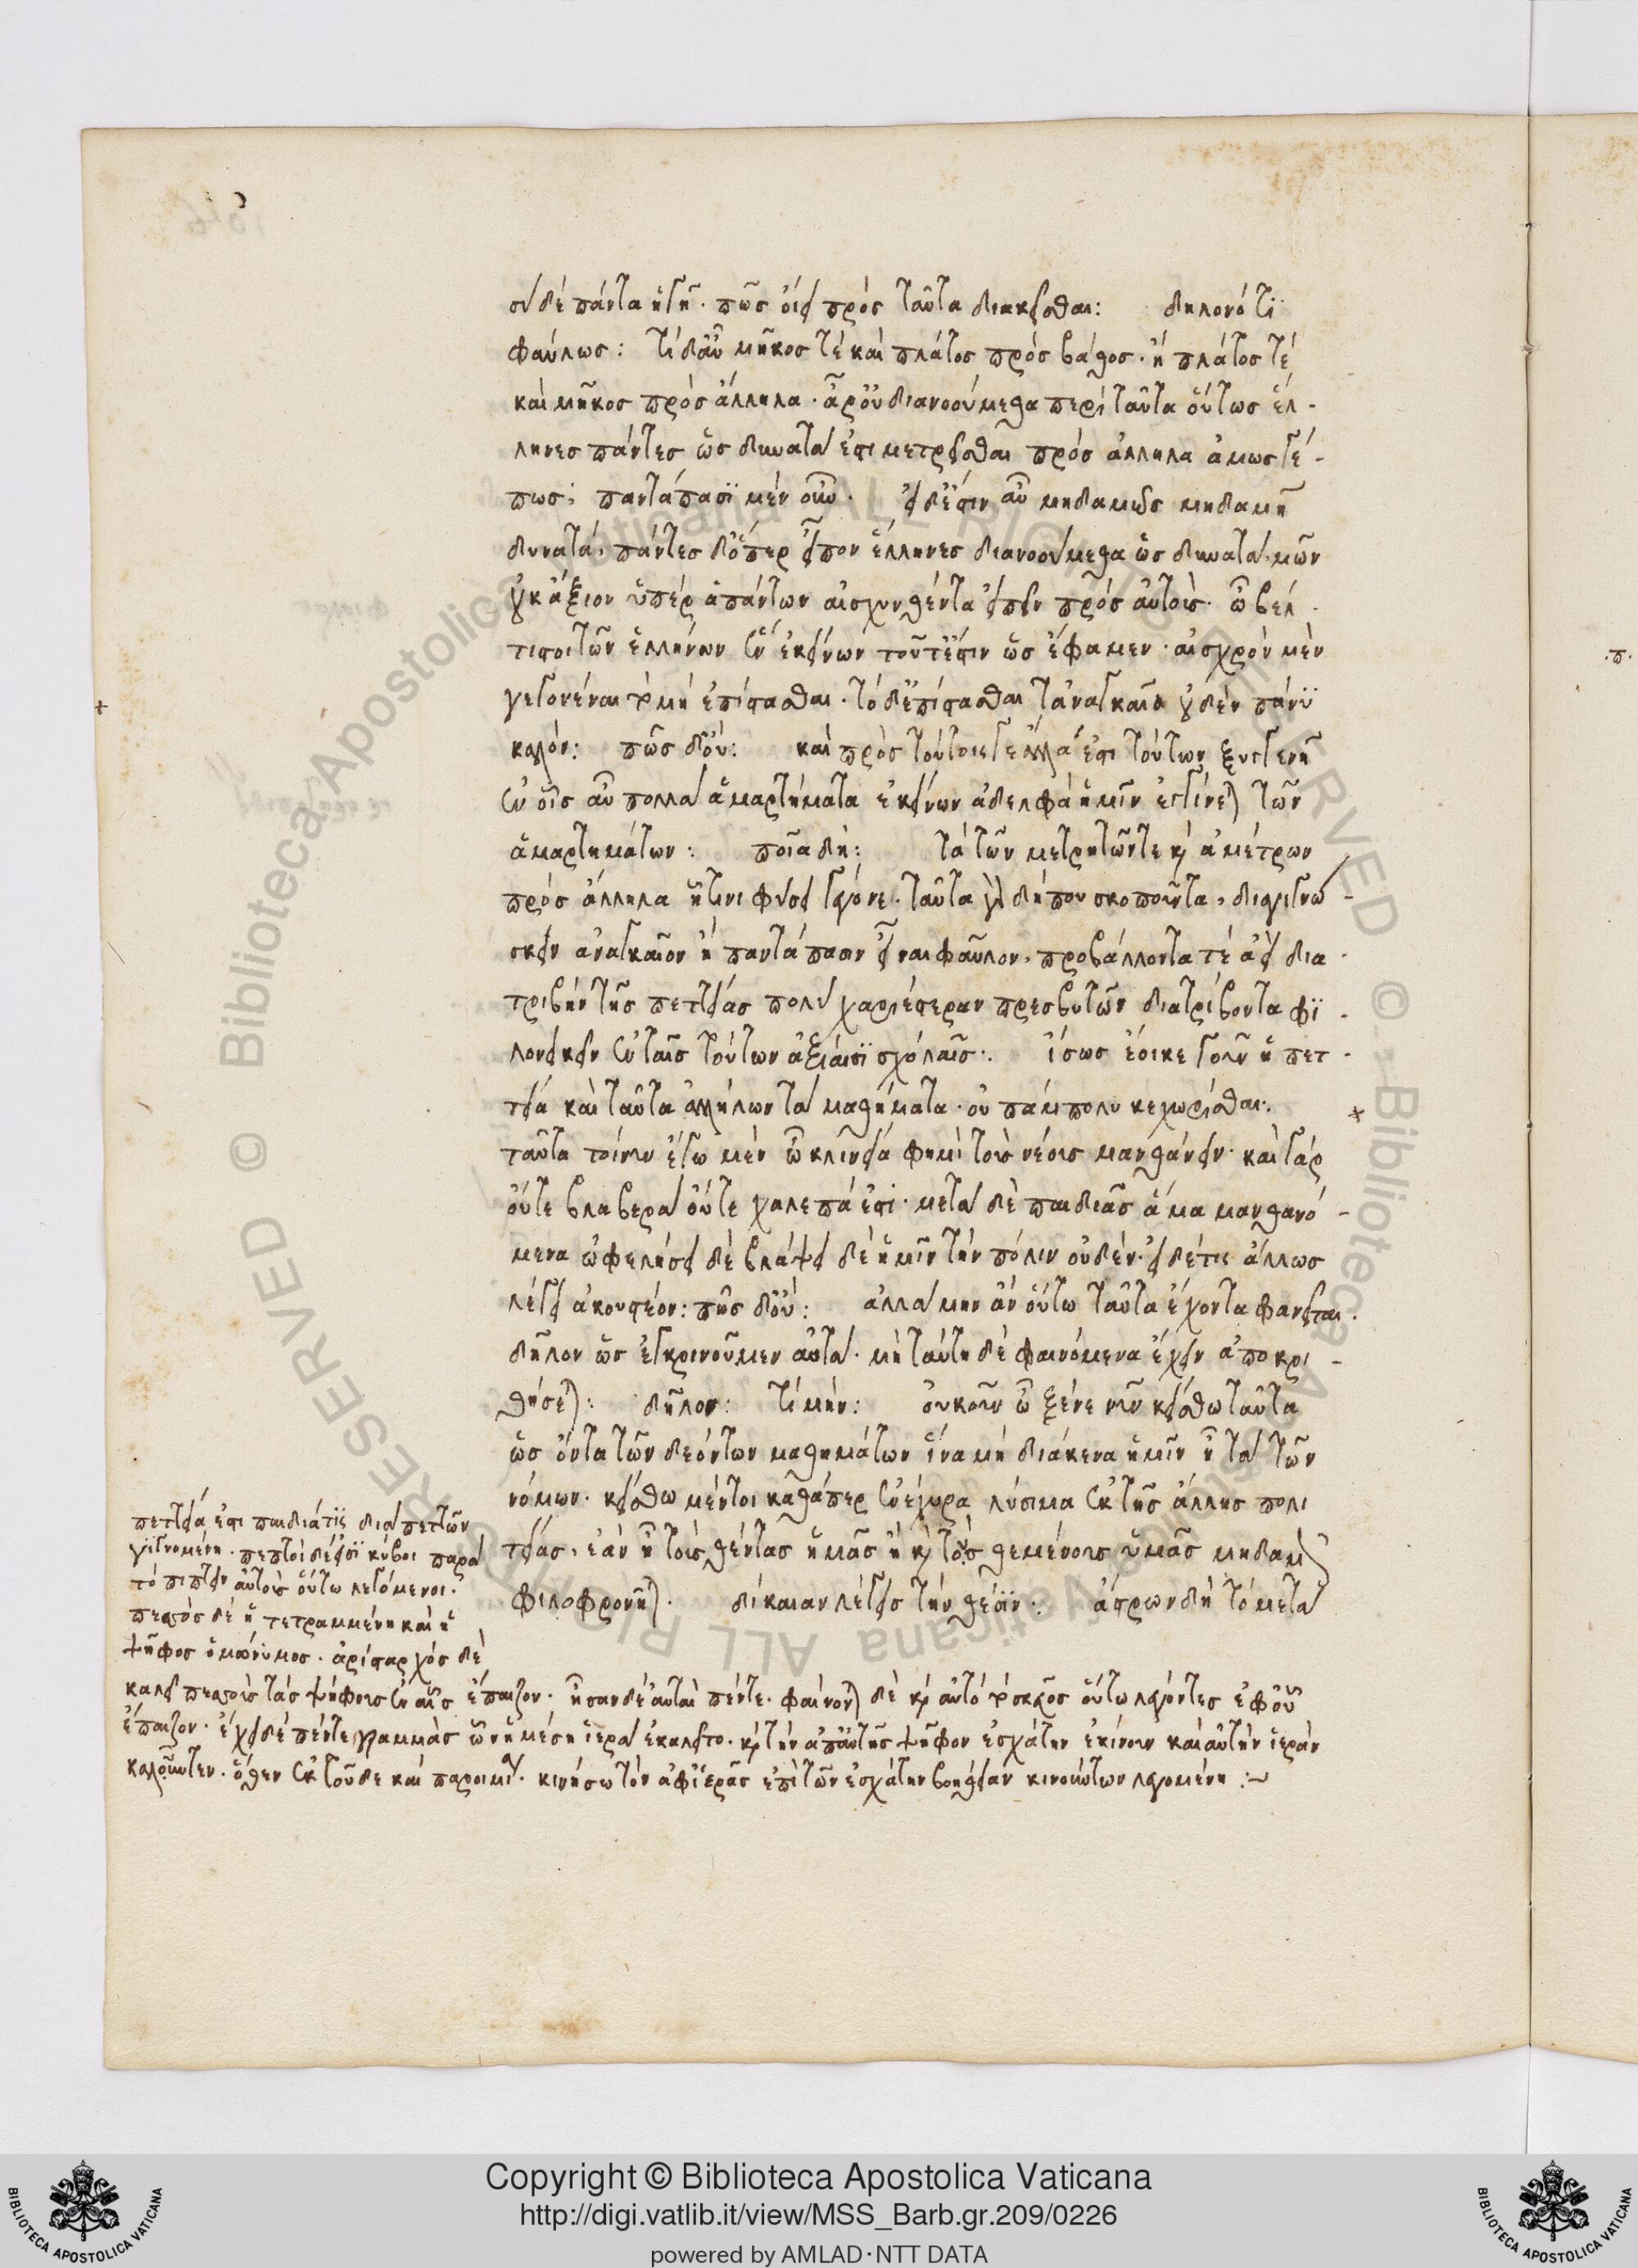 σὺ δὲ πάντα ἡγῇ. πῶς οἴει πρὸς ταῦτα διακεῖσθαι: δηλονότι
φαύλως: τί δ' αὖ μῆκός τε καὶ πλάτος πρὸς βάθος. ἢ πλάτος τέ
καὶ μῆκος πρὸς ἄλληλα. ἆρ' οὐ διανοούμεθα περὶ ταῦτα οὕτως ἕλ-
ληνες πάντες ὡς δυνατά ἐστι μετρεῖσθαι πρὸς ἄλληλα ἁμωσγέ-
πως; παντάπασι μὲν οὖν. εἰ δ' ἔστιν αὖ μηδαμῶς μηδαμῇ
δυνατά, πάντες δ' ὅπερ εἶπον ἕλληνες διανοούμεθα ὡς δυνατά. μῶν
οὐκ ἄξιον ὑπὲρ ἁπάντων αἰσχυνθέντα εἰπεῖν πρὸς αὐτούς. ὦ βέλ-
τιστοι τῶν ἑλλήνων ἓν ἐκείνων τοῦτ' ἔστιν ὧν ἔφαμεν. αἰσχρὸν μὲν
γεγονέναι τὸ μὴ ἐπίστασθαι. τὸ δ' ἐπίστασθαι τἀναγκαῖα οὐδὲν πάνυ
καλόν: πῶς δ' οὔ: καὶ πρὸς τούτοις γε ἄλλα ἐστι τούτων ξυγγενῆ
ἐν οἷς αὖ πολλὰ ἁμαρτήματα ἐκείνων ἀδελφὰ ἡμῖν ἐγγίνεται τῶν
ἁμαρτημάτων: ποῖα δή: τὰ τῶν μετρητῶν τε καὶ ἀμέτρων
πρὸς ἄλληλα ᾗτινι φύσει γέγονε. ταῦτα γὰρ δήπου σκοποῦντα, διαγιγνώ-
σκειν ἀναγκαῖον ἢ παντάπασιν εἶναι φαῦλον, προβάλλοντά τε ἀεὶ δια-
τριβὴν τῆς πεττείας πολὺ χαριέστεραν πρεσβυτῶν διατρίβοντα φι-
λονεικεῖν ἐν ταῖς τούτων ἀξίαισι σχολαῖς:. ἴσως ἔοικε γοῦν ἡ πετ-
τεία καὶ ταῦτα ἀλλήλων τὰ μαθήματα. οὐ πάμπολυ κεχωρίσθαι:.
ταῦτα τοίνυν ἐγὼ μὲν ὦ κλινεία φημὶ τοὺς νέους μανθάνειν. καὶ γὰρ
οὔτε βλαβερὰ οὔτε χαλεπά ἐστι. μετὰ δὲ παιδιᾶς ἅμα μανθανό-
μενα ὠφελήσει δὲ βλάψει δὲ ἡμῖν τὴν πόλιν οὐδέν. εἰ δέ τις ἄλλως
λέγει ἀκουστέον: πῶς δ' οὔ: ἀλλὰ μὴν ἂν οὕτω ταῦτα ἔχοντα φαίνηται.
δῆλον ὡς ἐγκρινοῦμεν αὐτά. μὴ ταύτῃ δὲ φαινόμενα ἔχειν ἀποκρι-
θήσεται: δῆλον: τί μήν: οὐκοῦν ὦ ξένε νῦν κείσθω ταῦτα
ὡς ὄντα τῶν δεόντων μαθημάτων ἵνα μὴ διάκενα ἡμῖν ᾖ τὰ τῶν
νόμων. κείσθω μέντοι καθάπερ ἐνέχυρα λύσιμα ἐκ τῆς ἄλλης πολι
τείας, ἐὰν ἢ τοὺς θέντας ἡμᾶς ἢ καὶ τοὺς θεμένους ὑμᾶς μηδαμῶς
φιλοφρονῆται. δικαίαν λέγεις τὴν θέσιν:. ἄστρων δὴ τὸ μετὰ
πεττεία ἐστι παιδιά τις διὰ πεττῶν
γιγνομένη. πεσσοὶ δέ εἰσι κύβοι παρὰ
τὸ πίπτειν αὐτοὺς οὕτω λεγόμενοι.
πεσσὸς δὲ ἡ τετραμμένη καὶ ἡ
ψῆφος ὁμωνύμως. ἀρίσταρχος δὲ
καλεῖ πεσσοὺς τὰς ψήφους ἐν αἷς ἔπαιζον. ἦσαν δὲ αὗται πέντε. φαίνονται δὲ καὶ αὐτὸ τὸ σκεῦος οὕτω λέγοντες ἐφ' οὗ
ἔπαιζον. ἔχει δὲ πέντε γραμμὰς ὧν ἡ μέση ἱερὰ ἐκαλεῖτο. καὶ τὴν ἀπ' αὐτῆς ψῆφον ἐσχάτην ἐκίνουν καὶ αὐτὴν ἱερὰν
καλοῦντες. ὅθεν ἐκ τοῦδε καὶ παροιμία. κινήσω τὸν ἀφ' ἱερᾶς ἐπὶ τῶν ἐσχάτην βοήθειαν κινούντων λεγομένη :~
+
+
.π.
Copyright © Biblioteca Apostolica Vaticana
http://digi.vatlib.it/view/MSS_Barb.gr.209/0226
powered by AMLAD·NTT DATA
BIBLIOTECA APOSTOLICA VATICANA
BIBLIOTECA APOSTOLICA VATICANA